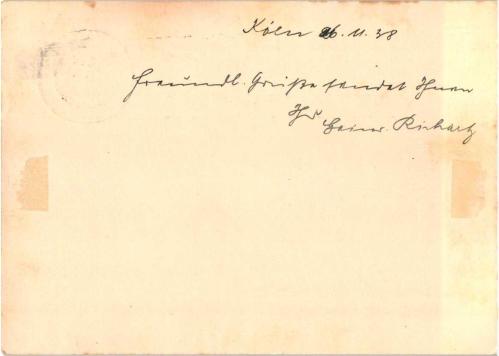 Köln 26.11.38
Freundl. Grüße sendet Ihnen
Ihr
Heinr. Richartz